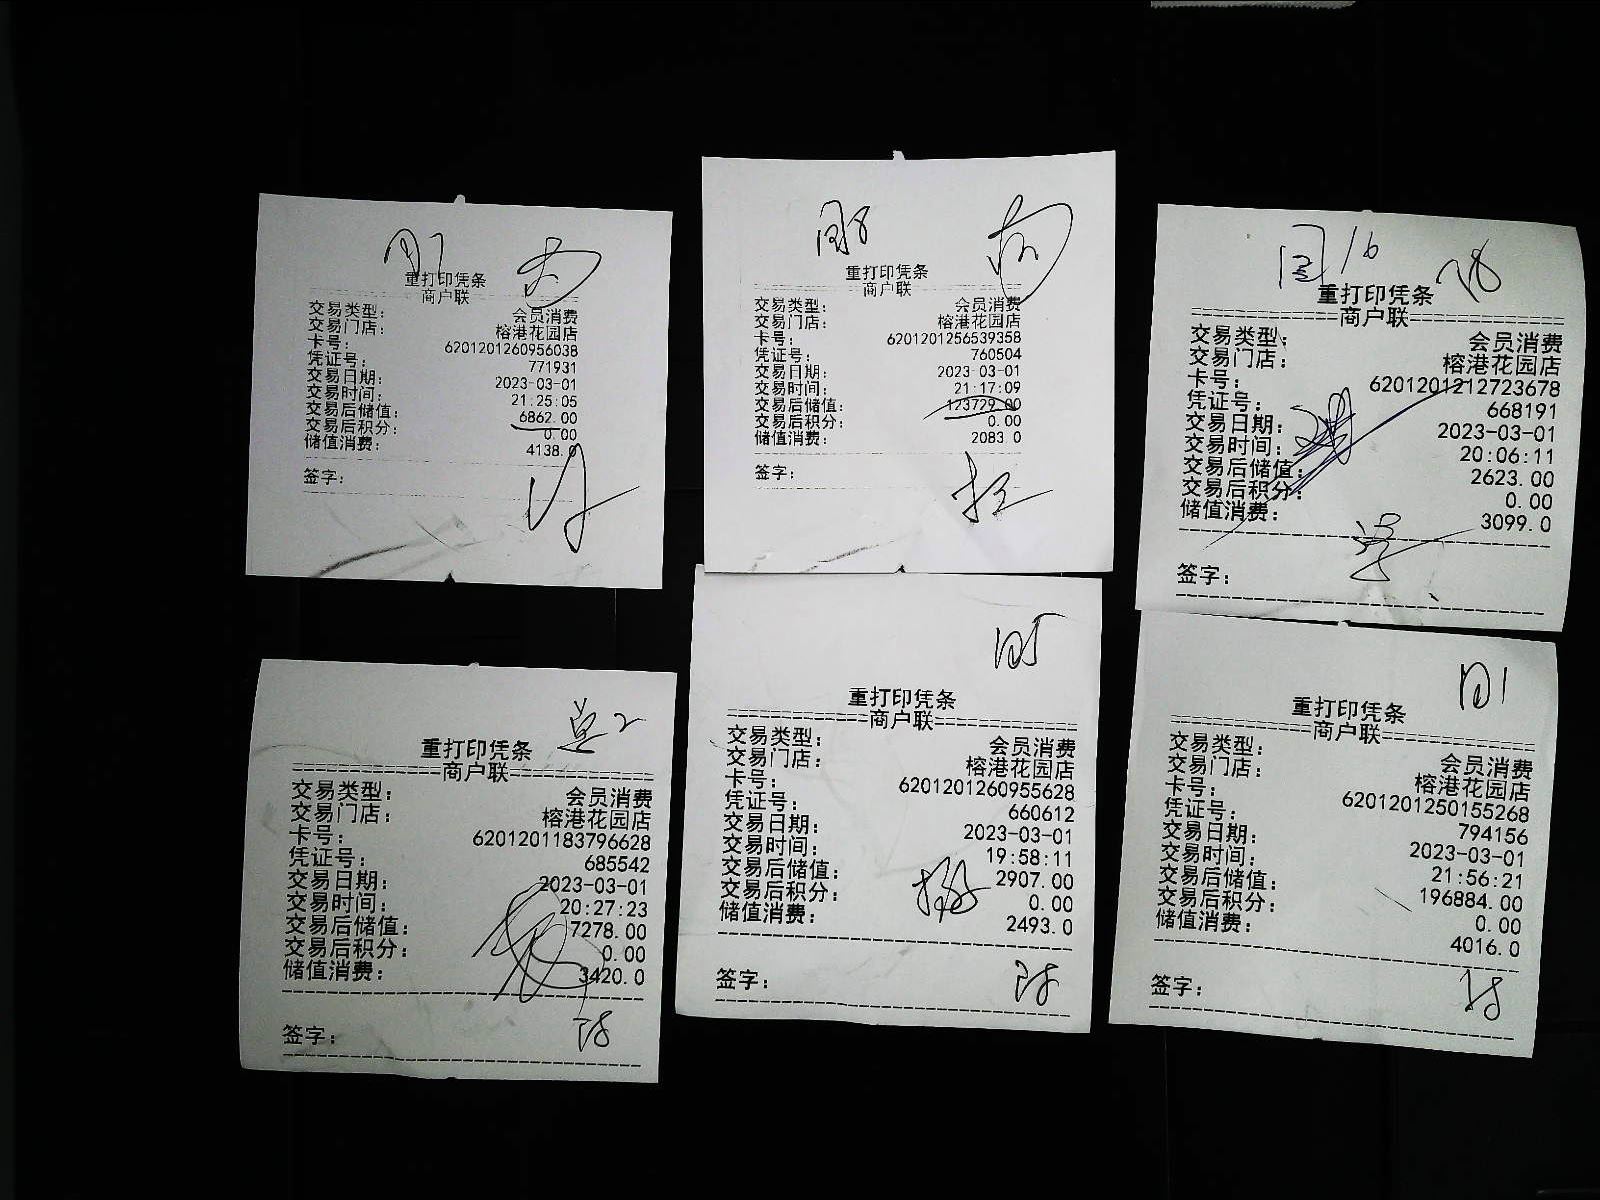 重打印凭条
商户联
交易类型: 会员消费
交易门店: 榕港花园店
卡号: 6201201260956038
凭证号: 771931
交易日期: 2023-03-01
交易时间: 21:25:05
交易后储值: 6862.00
交易后积分: 0.00
储值消费: 4138.0
签字:
重打印凭条
商户联
交易类型: 会员消费
交易门店: 榕港花园店
卡号: 6201201256539358
凭证号: 760504
交易日期: 2023-03-01
交易时间: 21:17:09
交易后储值: 123729.00
交易后积分: 0.00
储值消费: 2083.0
签字:
16
重打印凭条
商户联
交易类型: 会员消费
交易门店: 榕港花园店
卡号: 6201201212723678
凭证号: 668191
交易日期: 2023-03-01
交易时间: 20:06:11
交易后储值: 2623.00
交易后积分: 0.00
储值消费: 3099.0
签字:
重打印凭条
商户联
交易类型: 会员消费
交易门店: 榕港花园店
卡号: 6201201183796628
凭证号: 685542
交易日期: 2023-03-01
交易时间: 20:27:23
交易后储值: 7278.00
交易后积分: 0.00
储值消费: 3420.0
签字:
重打印凭条
商户联
交易类型: 会员消费
交易门店: 榕港花园店
卡号: 6201201260955628
凭证号: 660612
交易日期: 2023-03-01
交易时间: 19:58:11
交易后储值: 2907.00
交易后积分: 0.00
储值消费: 2493.0
签字:
重打印凭条
商户联
交易类型: 会员消费
交易门店: 榕港花园店
卡号: 6201201250155268
凭证号: 794156
交易日期: 2023-03-01
交易时间: 21:56:21
交易后储值: 196884.00
交易后积分: 0.00
储值消费: 4016.0
签字: